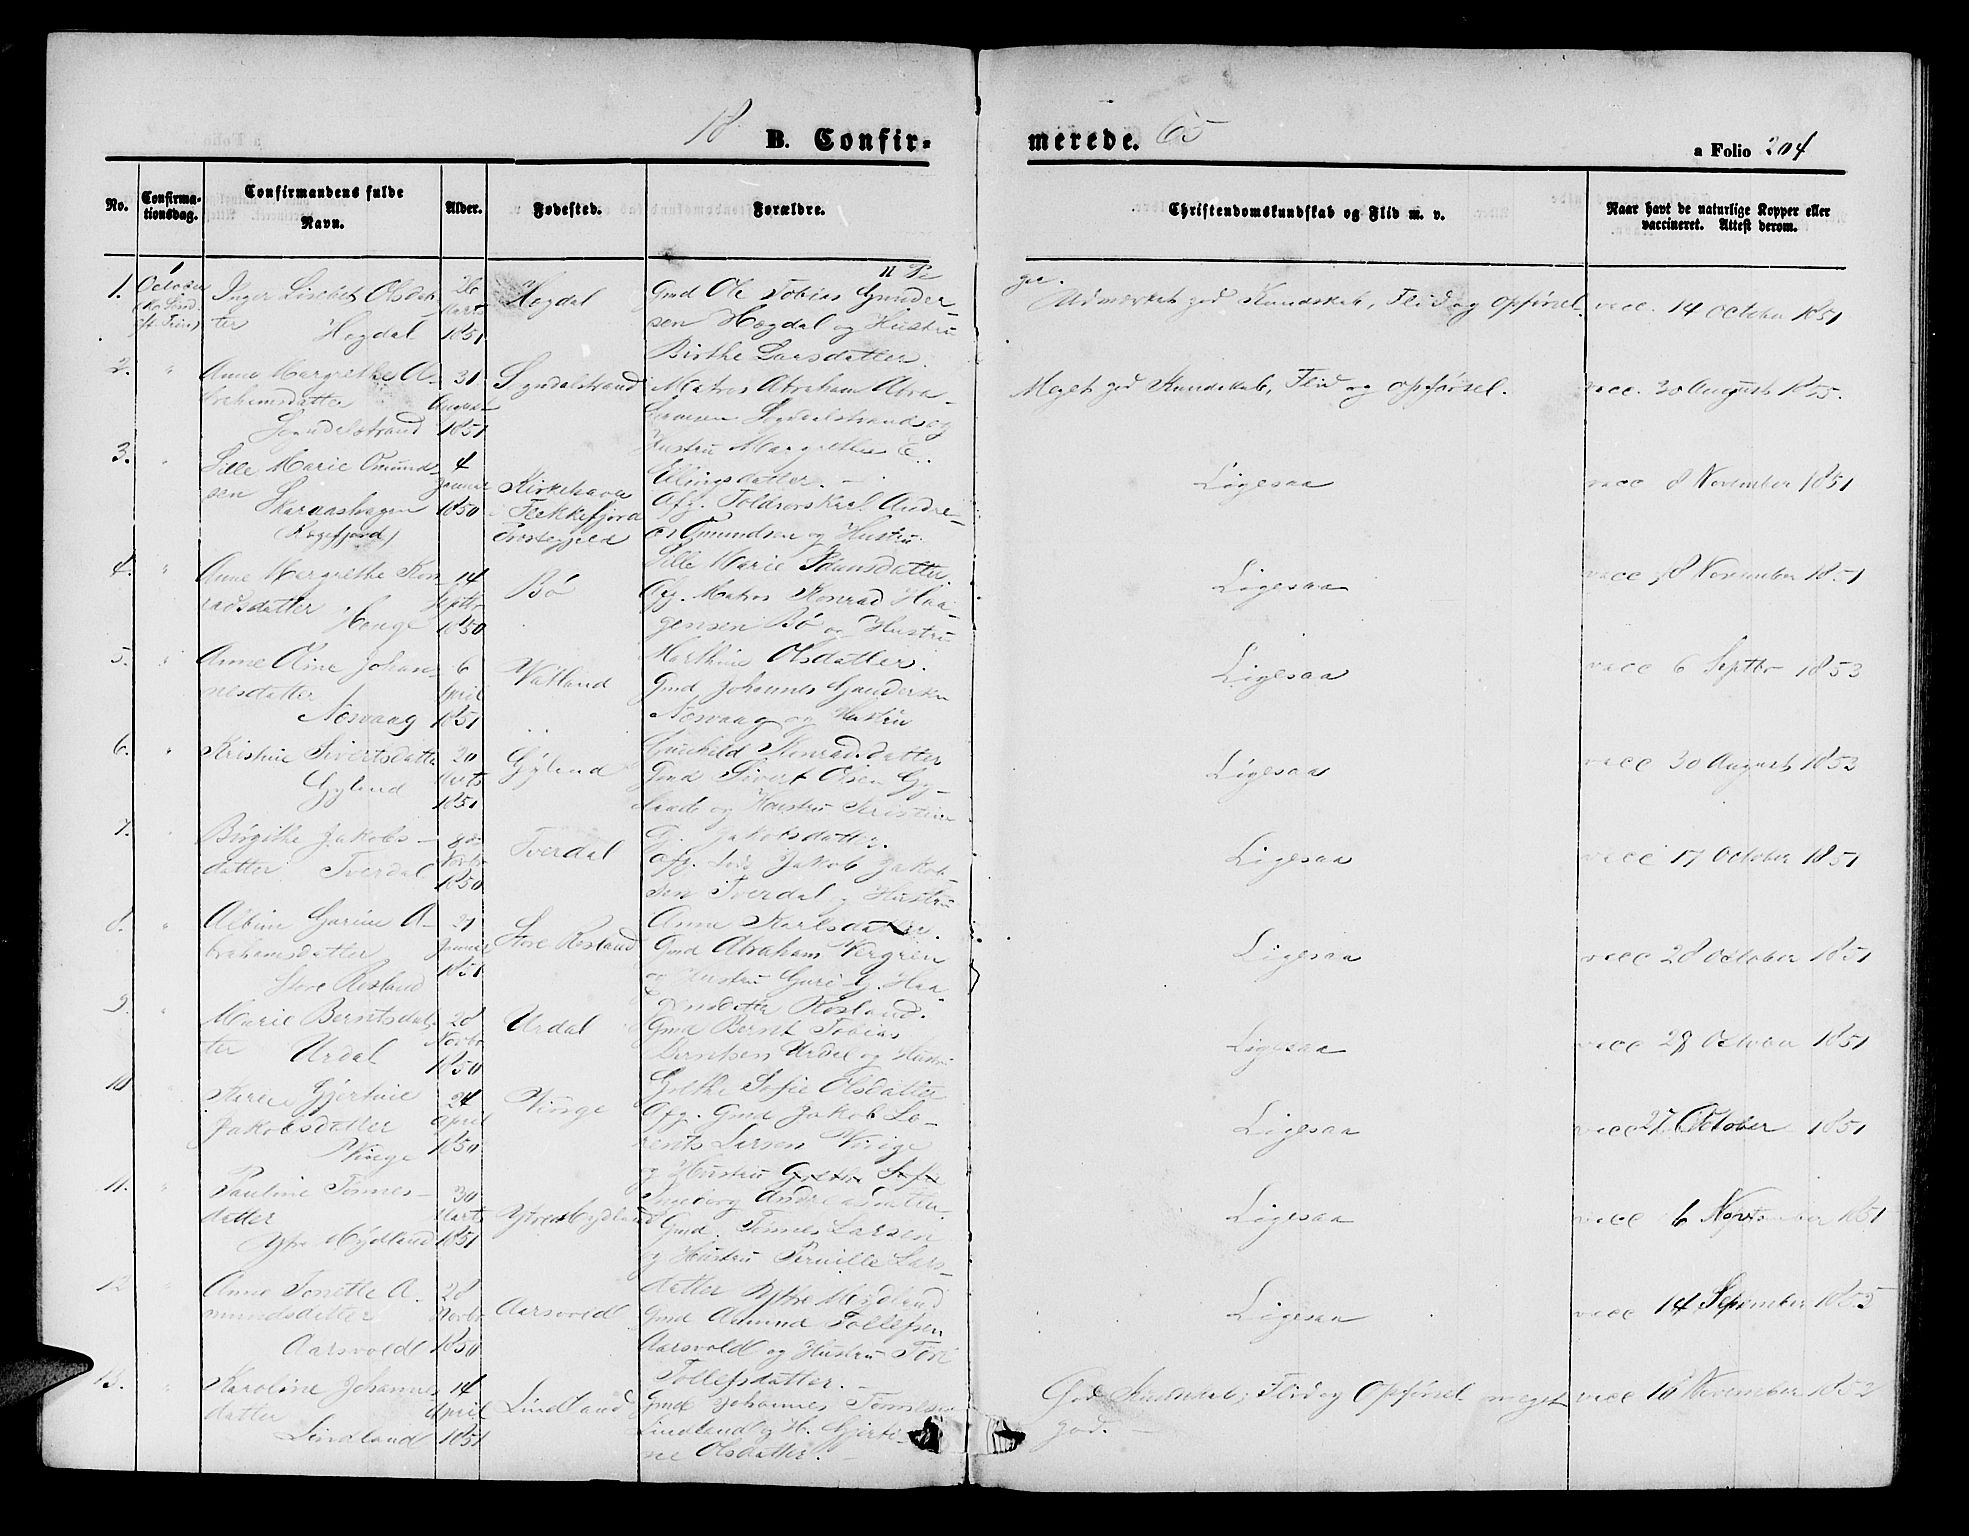 18 B. Confir-
merede. 65
a Folio 204
No.
Confirma-
tionsdag.
Confirmandens fulde
Navn.
Alder.
Fødested.
Forældre.
Christendomskundskab og Flid m. v.
Naar havt de naturlige Kopper eller
vaccineret. Attest derom.
1. 1 October
Inger Lisebet Olsdat-
ter
Hegdal
26
Marts
1851
Hegdal
Gmd Ole Tobias Gunder-
sen Hegdal og Hustru
Birthe Larsdatter.
Udmærket god Kundskab, Flid og Opførsel.
vacc. 14 October 1851
2. "
Anne Margrethe A-
brahamsdatter
Sogndalstrand
31
August
1851
Sogndalstrand
Matros Abraham Abra-
hamsen Sogndalstrand og
Hustru Margrethe E.
Ellingsdatter. -
Meget god Kundskab, Flid og Opførsel.
vacc. 30 August 1855.
3. "
Sille Marie Omunds-
sen
4
Januar
1850
Kirkehavn
Flekkefjord
Præstegjeld
Afg. Andre-
as Omundsen og Hustru
Sille Marie
Ligesaa
vacc 8 November 1851
4. "
Anne Margrethe Kon-
radsdatter
Hauge
14
Septbr
1850
Bø
Afg. Matros Konrad Haa-
gensen Bø og Hustru
Marthine Olsdatter.
Ligesaa
vacc 18 November 1851
5. "
Anne Oline Johan-
nesdatter
Nesvaag
6
April
1851
Vatland
Gmd Johannes Gundersen
Nesvaag og Hustru
Gunhild Konradsdatter
Ligesaa
vacc 6 Septbr 1853
6. "
Kristine Sivertsdatter
Gyland
20
Marts
1851
Gyland
Gmd Sivert Olsen Gy-
land og Hustru Kristine
T. Jakobsdatter.
Ligesaa
vacc 30 August 1853
7. "
Birgithe Jakobs-
datter Tverdal
Novbr
1850
Tverdal
Afg. Jakob Jakob-
sen Tverdal og Hustru
Anne Karlsdatter.
Ligesaa
vacc 17 October 1851
8. "
Albine Gurine A-
brahamsdatter
Store Rosland
21
Januar
1851
Store Rosland
Gmd Abraham
og Hustru Guri G. Haa-
Rosland.
Ligesaa
vacc 28 October 1851
9. "
Marie Berntsdat-
ter Urdal
28
Novbr
1850
Urdal
Gmd Bernt Tobias
Berntsen Urdal og Hustru
Grethe Sofie Olsdatter
Ligesaa
vacc 28 October 1851
10 "
Gjertine
Jakobsdatter
Vinge
24
April
1850
Vinge
Afg. Gmd Jakob Lo-
rents Larsen Vinge
og Hustru Grethe Sofie
Ingeborg Andreasdatter.
Ligesaa
vacc 27 October 1851
11. "
Pauline Tønnes-
datter
Ytre Mydland
30
Marts
1851
Ytre Mydland
Gmd. Tønnes Larsen
og Hustru Pernille Lars-
datter Ytre Mydland
Ligesaa
vacc 6 November 1851
12 "
Anne Tonette A-
mundsdatter
Aarsvold
28
Novbr
1850
Aarsvold
Gmd Asmund Tollefsen
Aarsvold og Hustru Tori
Tollefsdatter. -
Ligesaa
vacc 14 September 1852
13. "
Karoline Johannes-
datter
Lindland
14
April
1851
Lindland
Gmd Johannes Tønnesen
Lindland og H. Gjerti-
ne Olsdatter. -
God Kundskab, Flid og Opførsel meget
god. -
vacc 18 November 1852